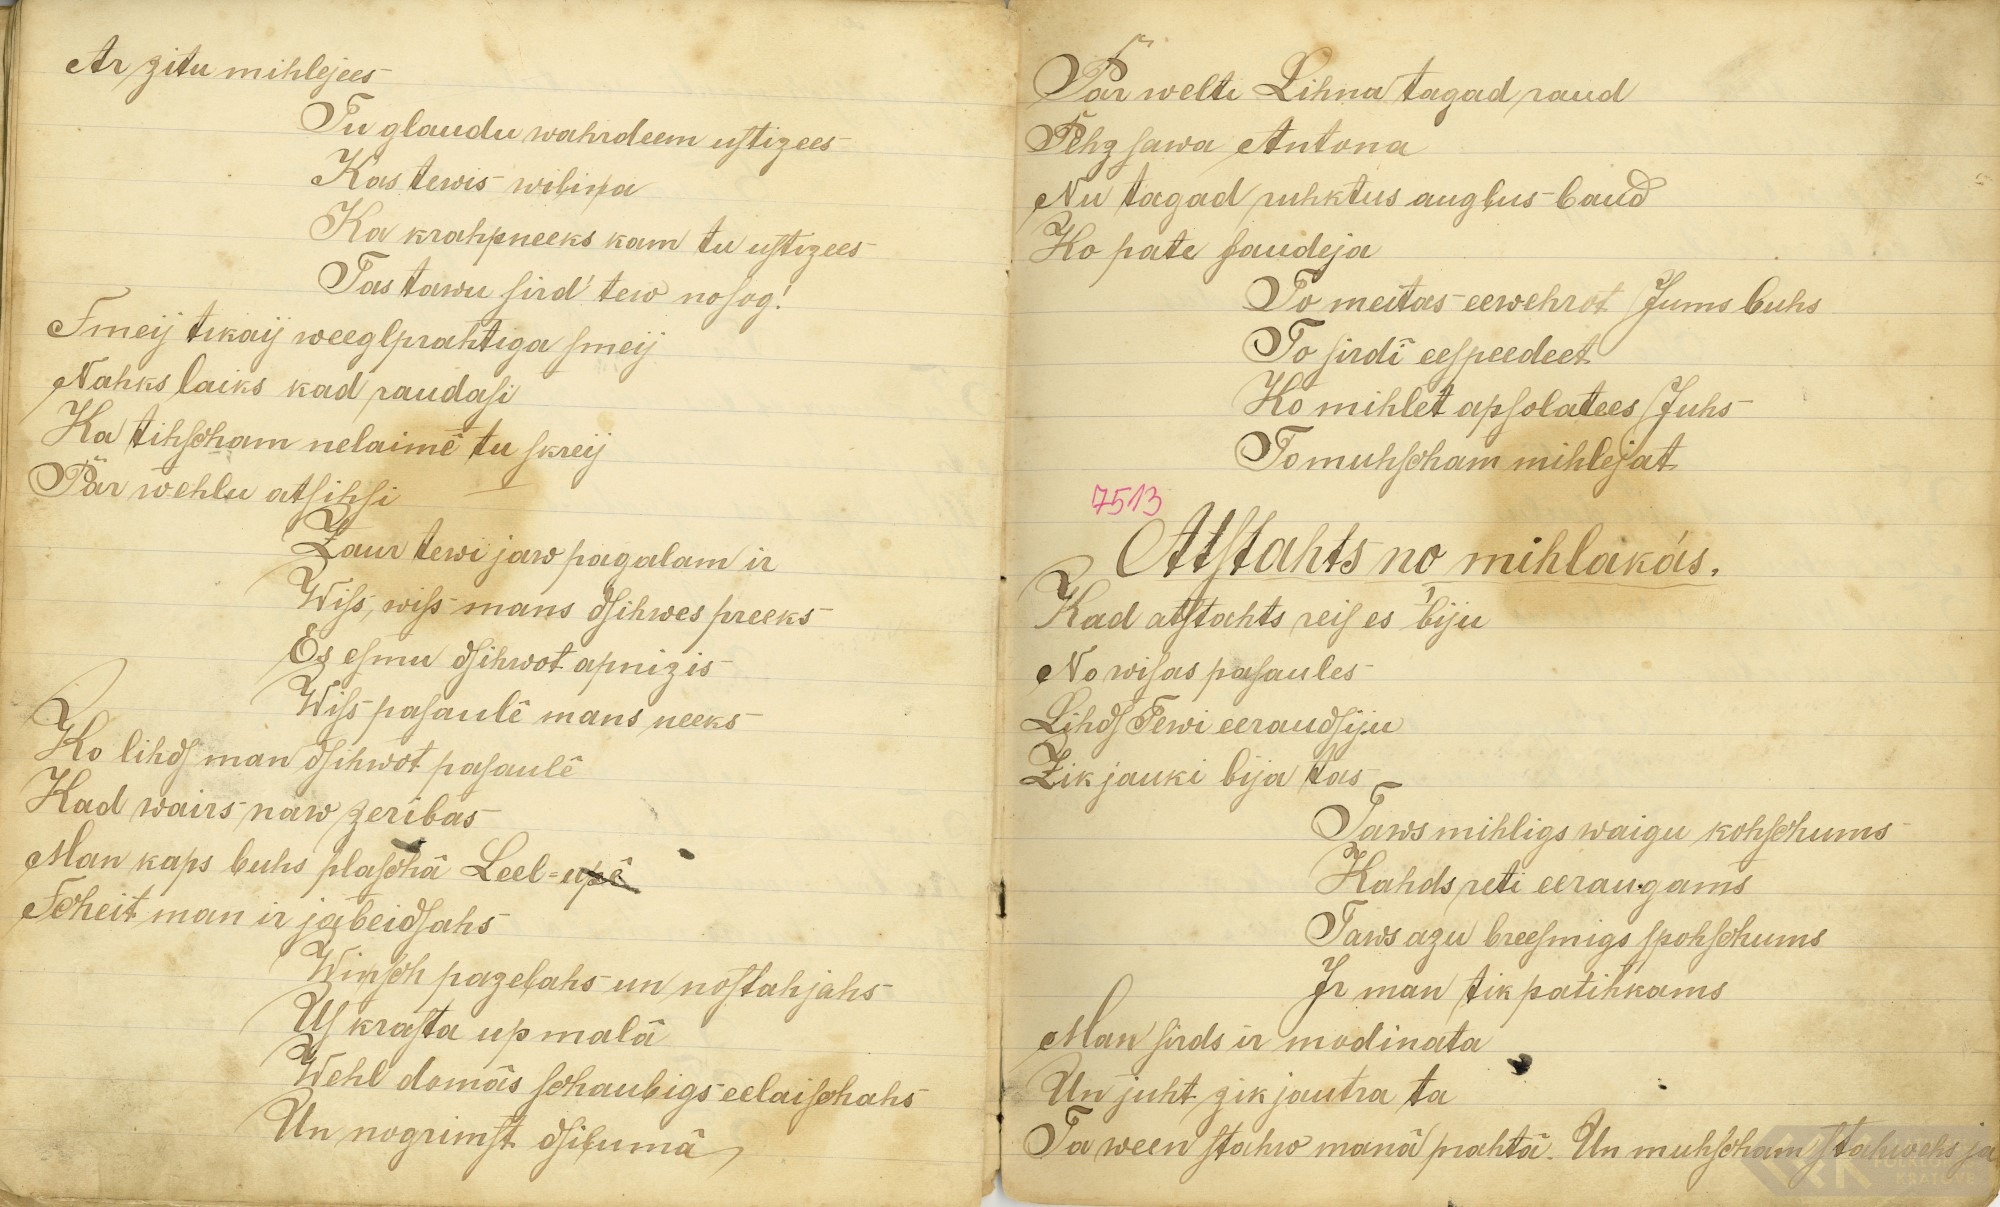 Ar zitu mihlejees
Tu glaudu wahrdeem uſtizees
Kas tewis wiliņa
Ka krahpneeks kam tu uſtizees
Tas tawu ſird' tew noſog!
Smeij tikaij weeglprahtiga ſmeij
Nahks laiks kad raudaſi
Ka tihſcham nelaimê tu ſkreij
Pär wehlu atſihſi
Zaur tewi jaw pagalam ir
Wiſs, wiſs mans dſihwes preeks
Es eſmu dſihwot apnizis
Wiſs paſaulê mans neeks
Ko lihdſ man dſihwot paſaulê
Kad wairs naw zeribas
Man kaps buhs plaſchâ Leel=upê
Scheit man ir jabeidſahs
Winſch pazeļahs un noſtahjahs
Uſ kraſta upmalâ
Wehl domâs ſchaubigs eelaiſchahs
Un nogrimſt dſiļumâ
Pär welti Lihna tagad raud
Pehz ſawa Antona
Nu tagad ruhktus auglus baud
Ko pate ſaudeja
To meitas eewehrot Jums buhs
To ſirdî eeſpeedeet
Ko mihlet apſolatees Juhs
To muhſcham mihlejat
7513
Atſtahts no mihlakás.
1
Kad atſtahts reiſ es biju
No wiſas paſaules
Lihdſ Tewi eeraudſiju
Zik jauki bija tas
Taws mihligs waigu kohſchums
Kahds reti eeraugams
Taws azu breeſmigs ſpohſchums
Ir man tik patihkams
Man ſirds ir modinata
Un juht zik jautra ta
Ta ween ſtahw manâ prahtâ. Un muhſcham ſtahwehs ja